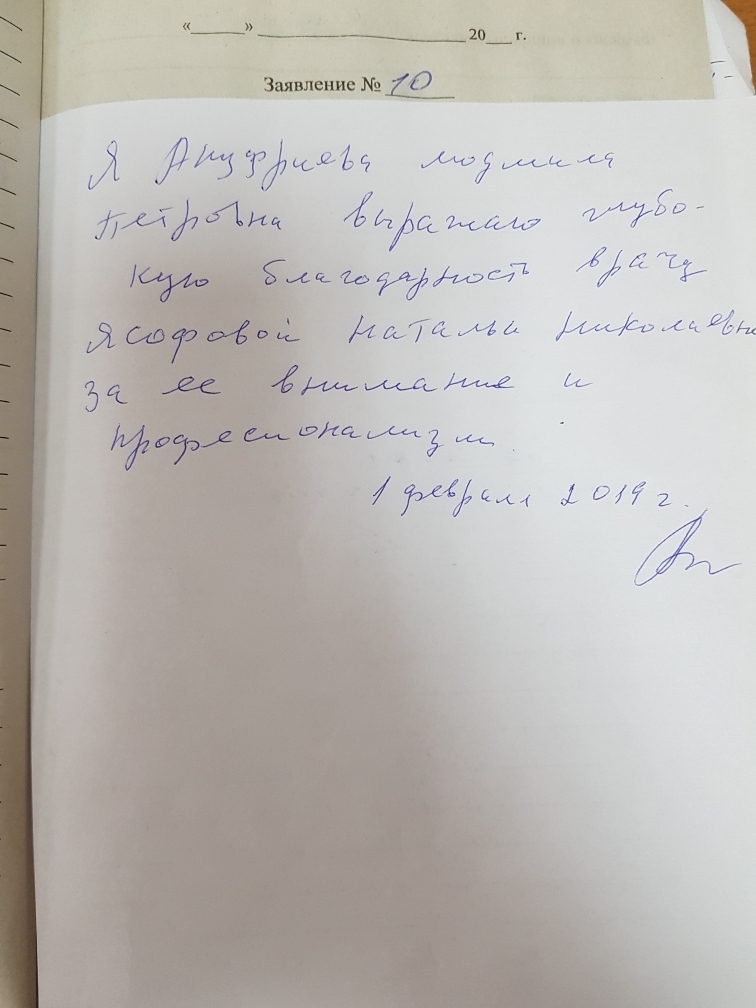 «_____» ______________________ 20___ г.
Заявление № 10
Я Ануфриева людмила
петровна выражаю глубо-
кую благодарность врачу
Ясофовой Натальи Николаевн
за ее внимание и
професионализм.
1 февраля 2019 г.